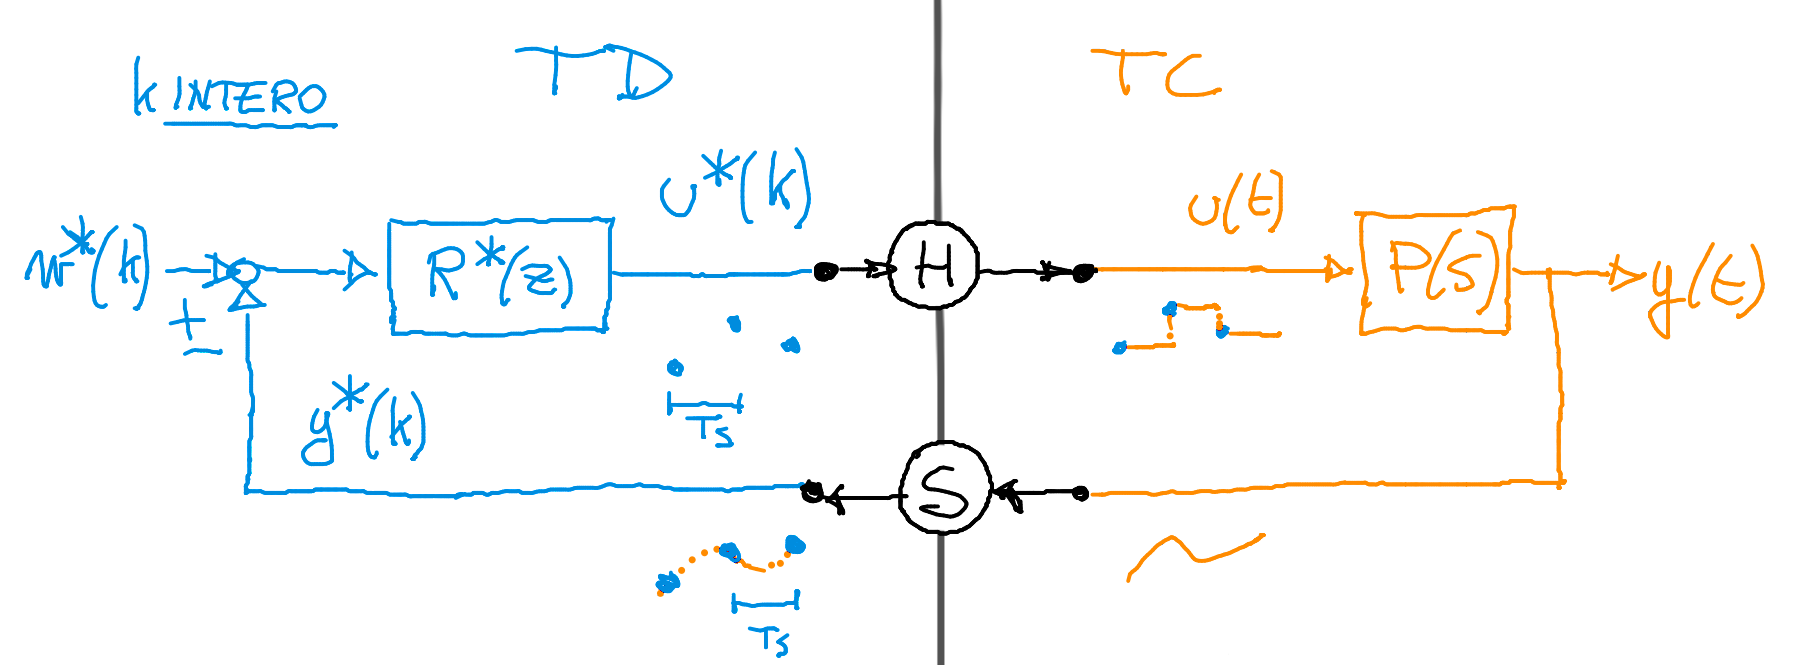 k INTERO
TD
TC
w*(k)
+
−
R*(z)
u*(k)
H
u(t)
P(s)
y(t)
Ts
y*(k)
S
Ts